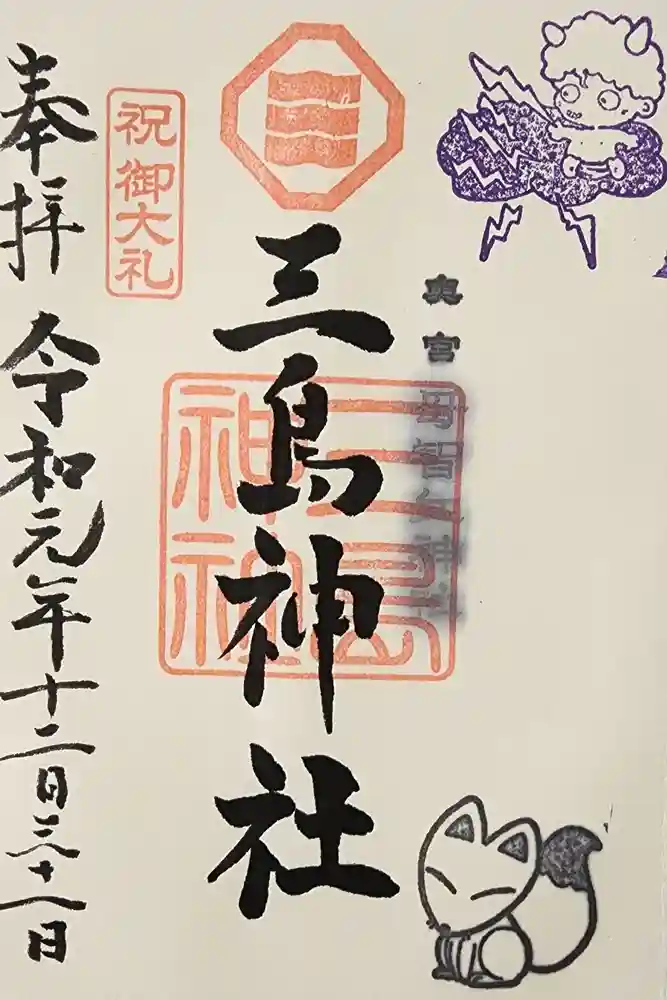 奥宮 母智丘神社
三島神社
三島
神社
祝御大礼
奉拝 令和元年十二月三十一日